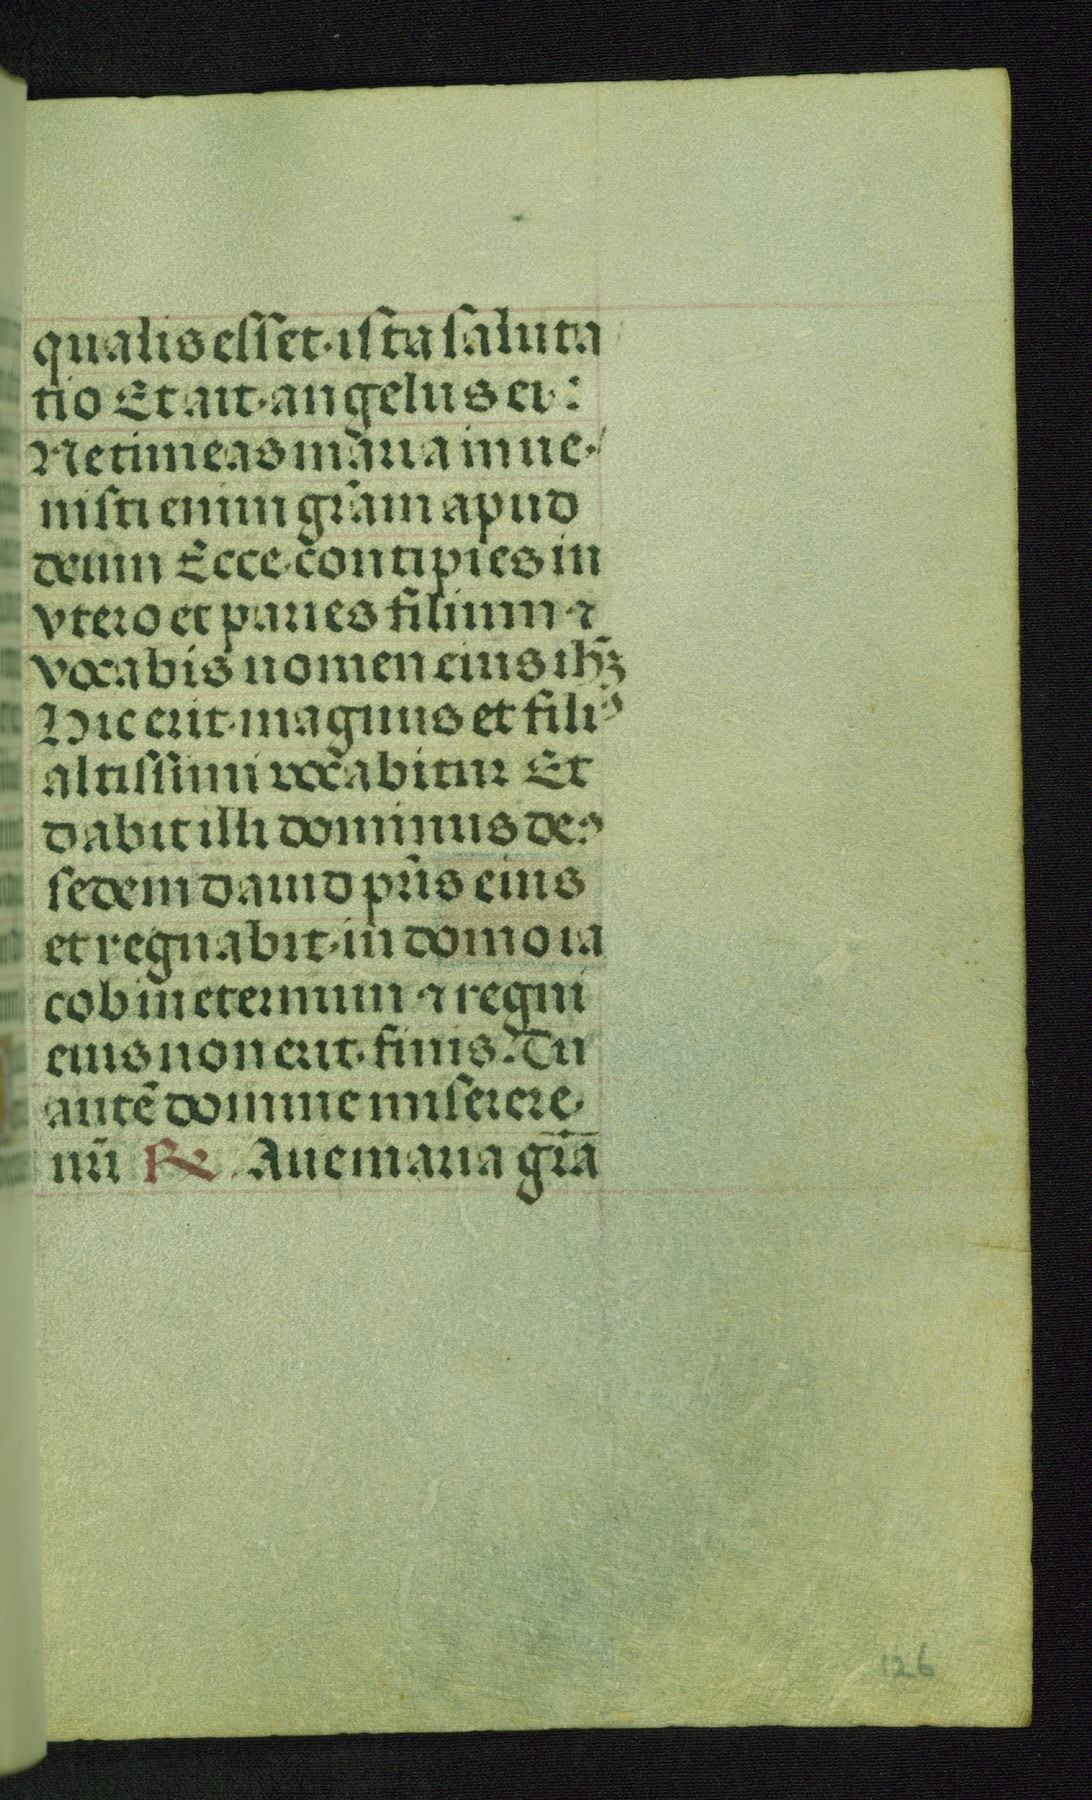 qualis esset ista saluta
tio Et ait angelus ei:
Ne timeas maria inue
nisti enim gr̃am apud
deum Ecce concipies in
vtero et paries filium ⁊
vocabis nomen eius ihʒ̃
Hic erit magnus et filiꝰ
altissimi vocabitur Et
dabit illi dominus des
sedem dauid pr̃is eius
et regnabit in domo ia
cob in eternum ⁊ regni
eius non erit finis. Tu
autẽ domine miserere
nr̃i ℟. Aue maria gr̃a
126